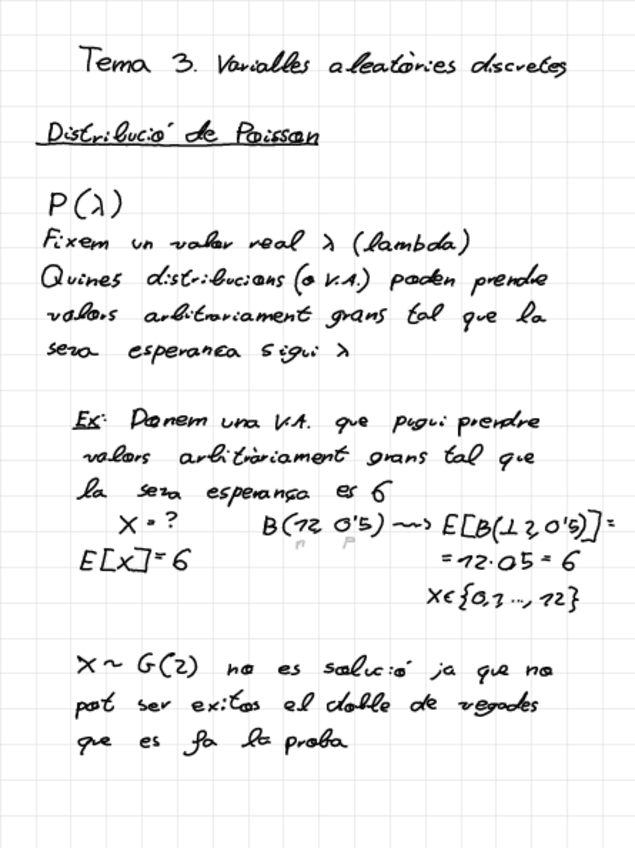 Tema 3. Variables aleatòries discretes
Distribució de Poisson
P(λ)
Fixem un valor real λ (lambda)
Quines distribucions (o V.A.) poden prendre
valors arbitrariament grans tal que la
seva esperanca sigui λ
Ex: Donem una V.A. que pugui prendre
valors arbitràriament grans tal que
la seva esperança es 6
X = ? B(12 0'5) ⇝ E[B(12,0'5)] =
n P
E[X] = 6 = 12·0.5 = 6
X∈{0,1..., 12}
X ~ G(2) no es solució ja que no
pot ser exitos el doble de vegades
que es fa la proba